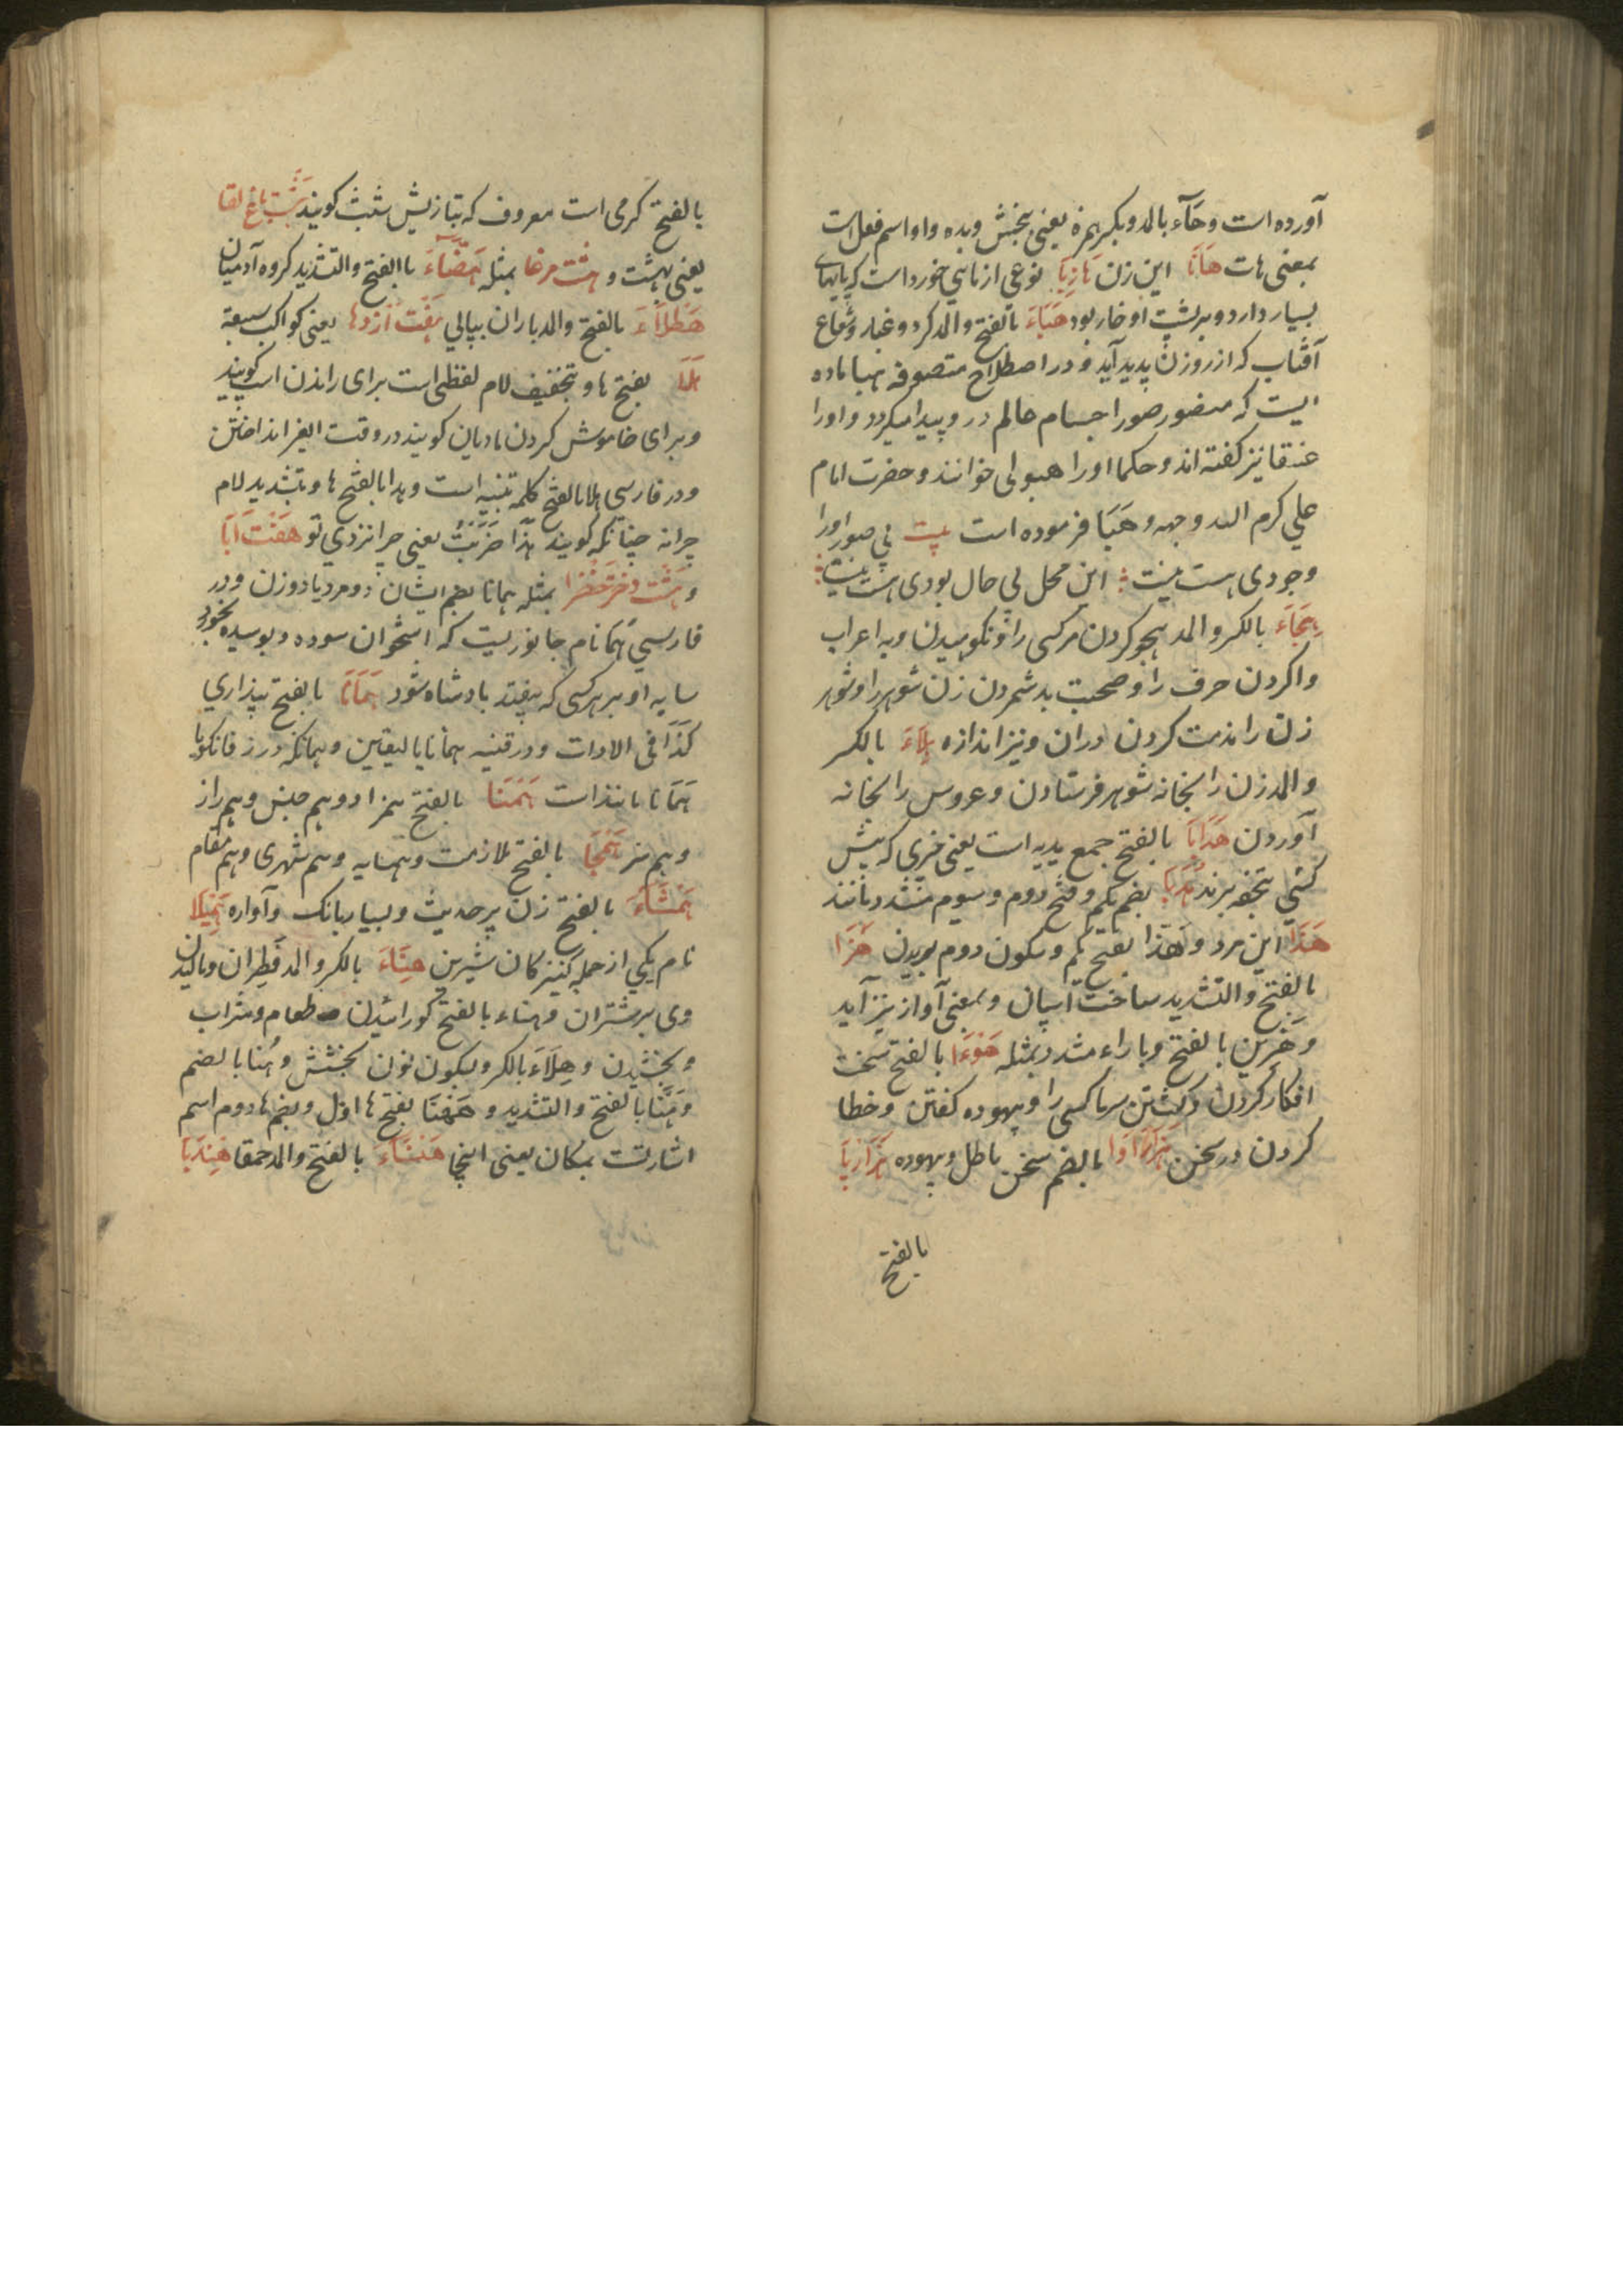 آورده است وهَآء بالمد وبکسر همزه یعنی ببخش وبده واو اسم فعل است
بمعنی هات هَانَا این زن هَازِبَا نوعی از ماهی خورد است که پایهای
بسیار دارد وبر پشت او خار بود هَبَاءَ بالفتح والمد کرد وغبار وشعاع
آفتاب که از روزن پدید آید ودر اصطلاح متصوفه هبا ماده
ایست که صور اجسام عالم درو پیدا میکردد واورا
عنقا نیز کفته اند وحکما اورا هیولی خوانند وحضرت امام
علی کرم الله وجهه وهَبَا فرموده است بیت بی صور اورا
وجودی هست نیست این محل بی حال بودی هست نیست
هِجَاءَ بالکسر والمد هجو کردن مر کسی را ونکوهیدن وبه اعراب
وا کردن حرف را وصحبت بد شمردن زن شوهر را وشوهر
زن را مذمت کردن دران ونیز اندازه هِدَاءَ بالکسر
والمد زن را بخانه شوهر فرستادن وعروس را بخانه
آوردن هَدَایَا بالفتح جمع هدیه است یعنی چیزی که پیش
کسی تحفه برند بضم یکم وفتح دوم وسیوم مشدد مانند
هَذَا این مرد وهَذَا بفتح یکم وسکون دوم بریدن هَرَا
بالفتح والتشدید ساخت اسپان وبمعنی آواز نیز آید
بالفتح وبا راء مشدد بمثله هَرْءَا بالفتح سخت
افکار کردن وکشتن سرما کسی را وبیهوده کفتن وخطا
کردن در سخن بالضم سخن باطل وبیهوده
بالفتح
بالفتح کرمی است معروف که بتازیش شبث کویند هَشْت باغ لقا
یعنی بهشت وهشت مرغا بمثله هَضَّاءَ باالفتح والتشدید کروه آدمیان
هَطْلَاءَ بالفتح والمد باران پیاپی هَفْت اژدها یعنی کواکب سبعة
هَلَا بفتح ها وتخفیف لام لفظی است برای راندن اسپ کویند
وبرای خاموش کردن مادیان کویند در وقت انداختن
ودر فارسی هلا بالفتح کلمه تنبیه است وهلا بالفتح ها وتشدید لام
چرانه چنانکه کویند هلّا ضَرَبْتَ یعنی چرا نزدی تو هَفْت آبَا
وهَشْت دختر خضرا بمثله هما بضم ایشان دو مرد یا دو زن ودر
فارسی هُمَا نام جانوریست که استخوان سوده وبوسیده بخورد
سایه او بر هر کسی که بیفتد بادشاه شود هَمَانَا بالفتح پنداری
کَذَا فی الادات ودر قنیه همانا بالیقین وهمانکه در زفانکویا
هَمَانَا مانند است هَمْتَا بالفتح همزاد وهم جنس وهم راز
وهم سر هَمْجَا بالفتح ملازمت وهمسایه وهم شهری وهم مقام
هَمْشَاءَ بالفتح زن پر حدیث وبسیار بانک وآواره هُمَیْلَا
نام یکی از جمله کنیزکان شیرین هِنَاءَ بالکسر والمد قَطِران ومالیدن
وی بر شتران وهناء بالفتح کوراشیدن طعام وشراب
وبخشیدن و بالکسر وسکون نون بخشش وهُنَا بالضم
وهَنَّا بالفتح والتشدید وهَهُنَا بفتح ها اول وبضم ها دوم اسم
اشارتست بمکان یعنی اینجا هَنْبَاءَ بالفتح والمد حمقا هِنْدَبَا